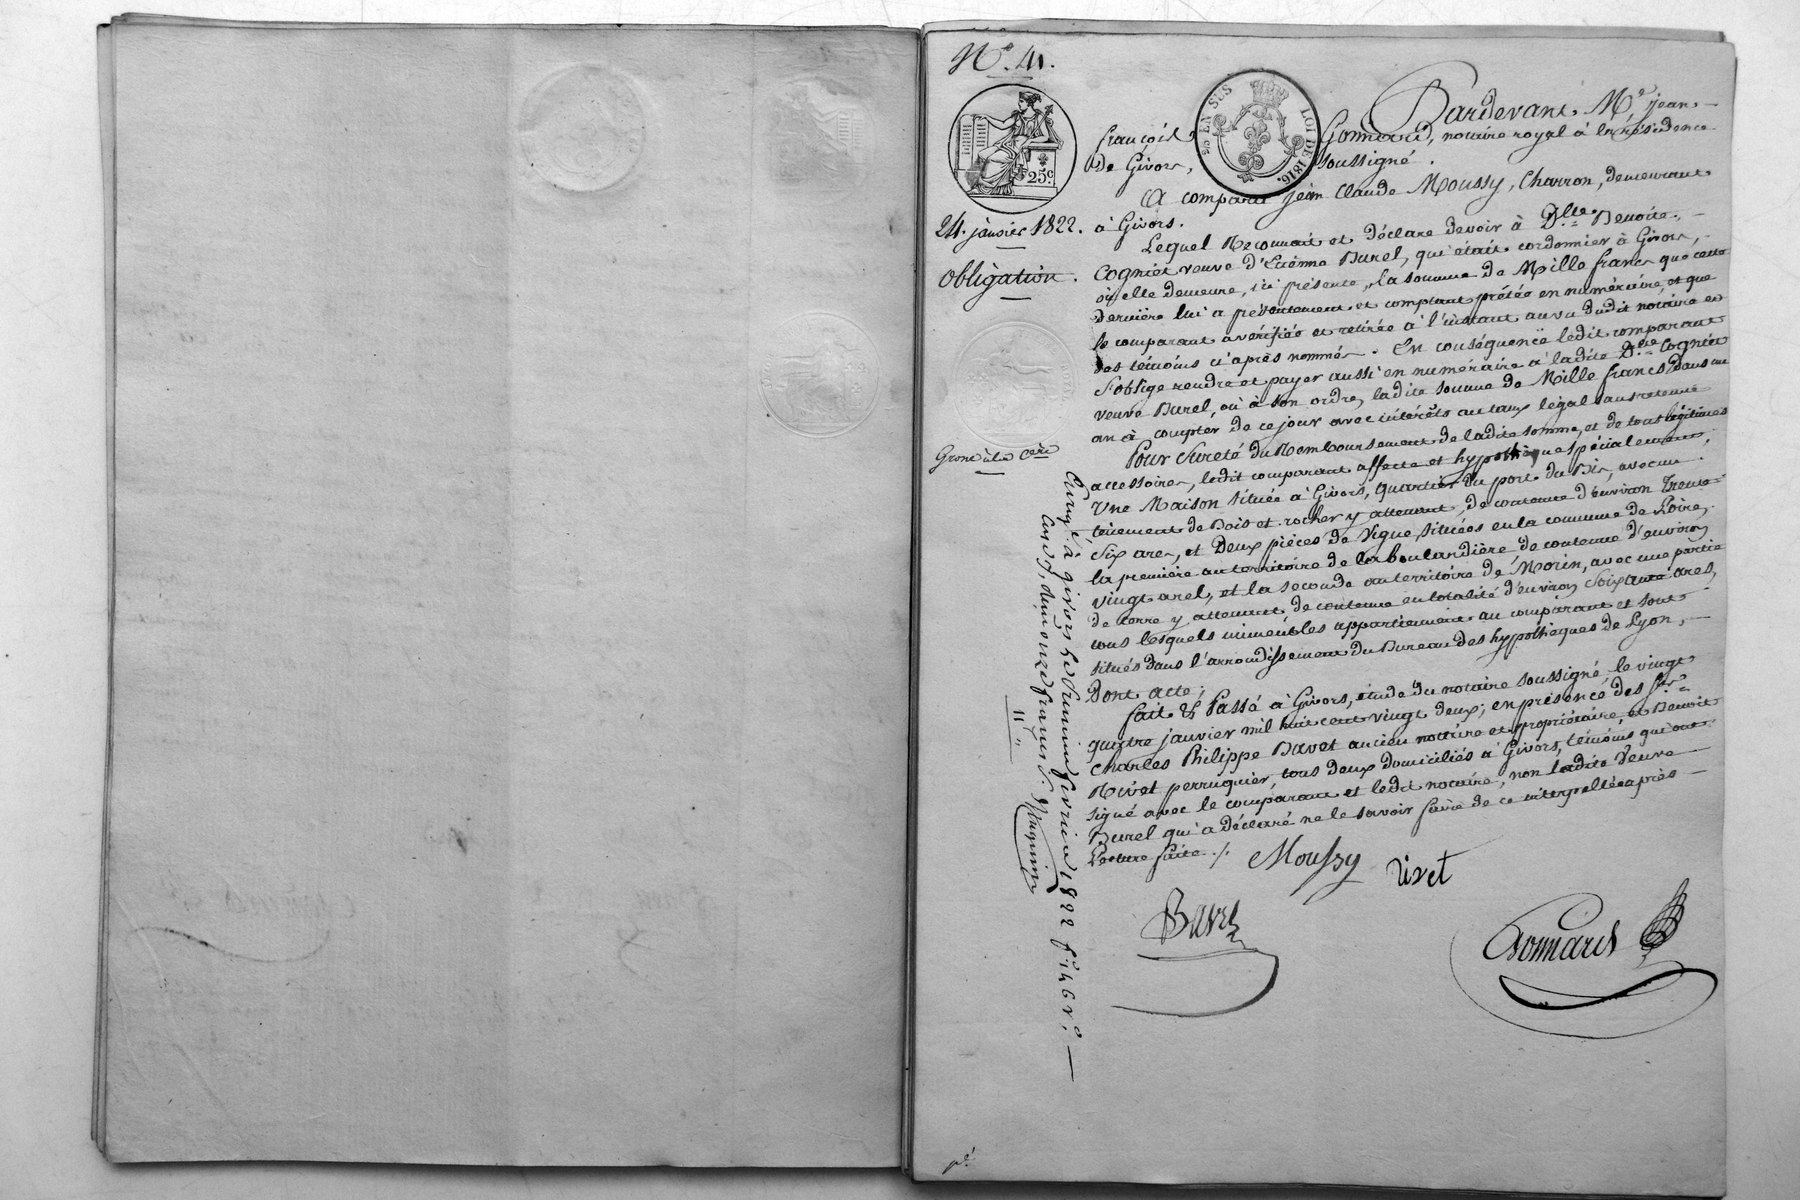 N.° 41.
25c.
EN SUS
LOI DE 1816.
24. janvier 1822.
obligation.
Grosse à la Cère
Pardevant Me. jean
françois Gonnard, notaire royal à la résidence
de Givors, soussigné.
A comparu jean Claude Moussy, Charron, demeurant
à Givors.
Lequel Reconnait et déclare devoir à Dlle. Benoite
Cogniet veuve d'Etienne Burel, qui était cordonnier à Givors,
où elle demeure, ici présente, la somme de Mille francs que cette
dernière lui a présentement et comptant prêtée en numéraire, et que
le comparant a vérifiée et retirée à l'instant au vu dudit notaire et
des témoins ci après nommés. En conséquence ledit comparant
s'oblige rendre et payer aussi en numéraire à ladite Dlle. Cogniet
veuve Burel, où à son ordre, ladite somme de Mille francs dans un
an à compter de ce jour avec intérêts au taux légal sans retenue
Pour sureté du Remboursement de ladite somme, et de tous légitimes
accessoires, ledit comparant affecte et hypothèque spécialement,
Une Maison située à Givors, quartier du port du Bis, avec un
tènement de Bois et rocher y attenant, de contenue d'environ trente
six ares, et Deux pièces de Vigne situées en la commune de Loire,
la première au territoire de la boulandière de contenue d'environ
vingt ares, et la seconde au territoire de Morin, avec une partie
de terre y attenant de contenue en totalité d'environ soixante ares,
tous lesquels immeubles appartiennent au comparant et sont
situés dans l'arrondissement du Bureau des hypothèques de Lyon,
Dont acte;
fait & Passé à Givors, étude du notaire soussigné, le vingt
quatre janvier mil huit cent vingt deux; en présence des Srs.
Charles Philippe Bavet ancien notaire et propriétaire, et Benoit
Rivet perruquier, tous deux domiciliés à Givors, témoins qui ont
signé avec le comparant et ledit notaire, non ladite veuve
Burel qui a déclaré ne le savoir faire de ce interpellée après
Lecture faite ./.
Moussy
Rivet
Bavet
Gonnard
Enregé à givors le premier fevrier 1822 fo. 146 Ro.
11 "